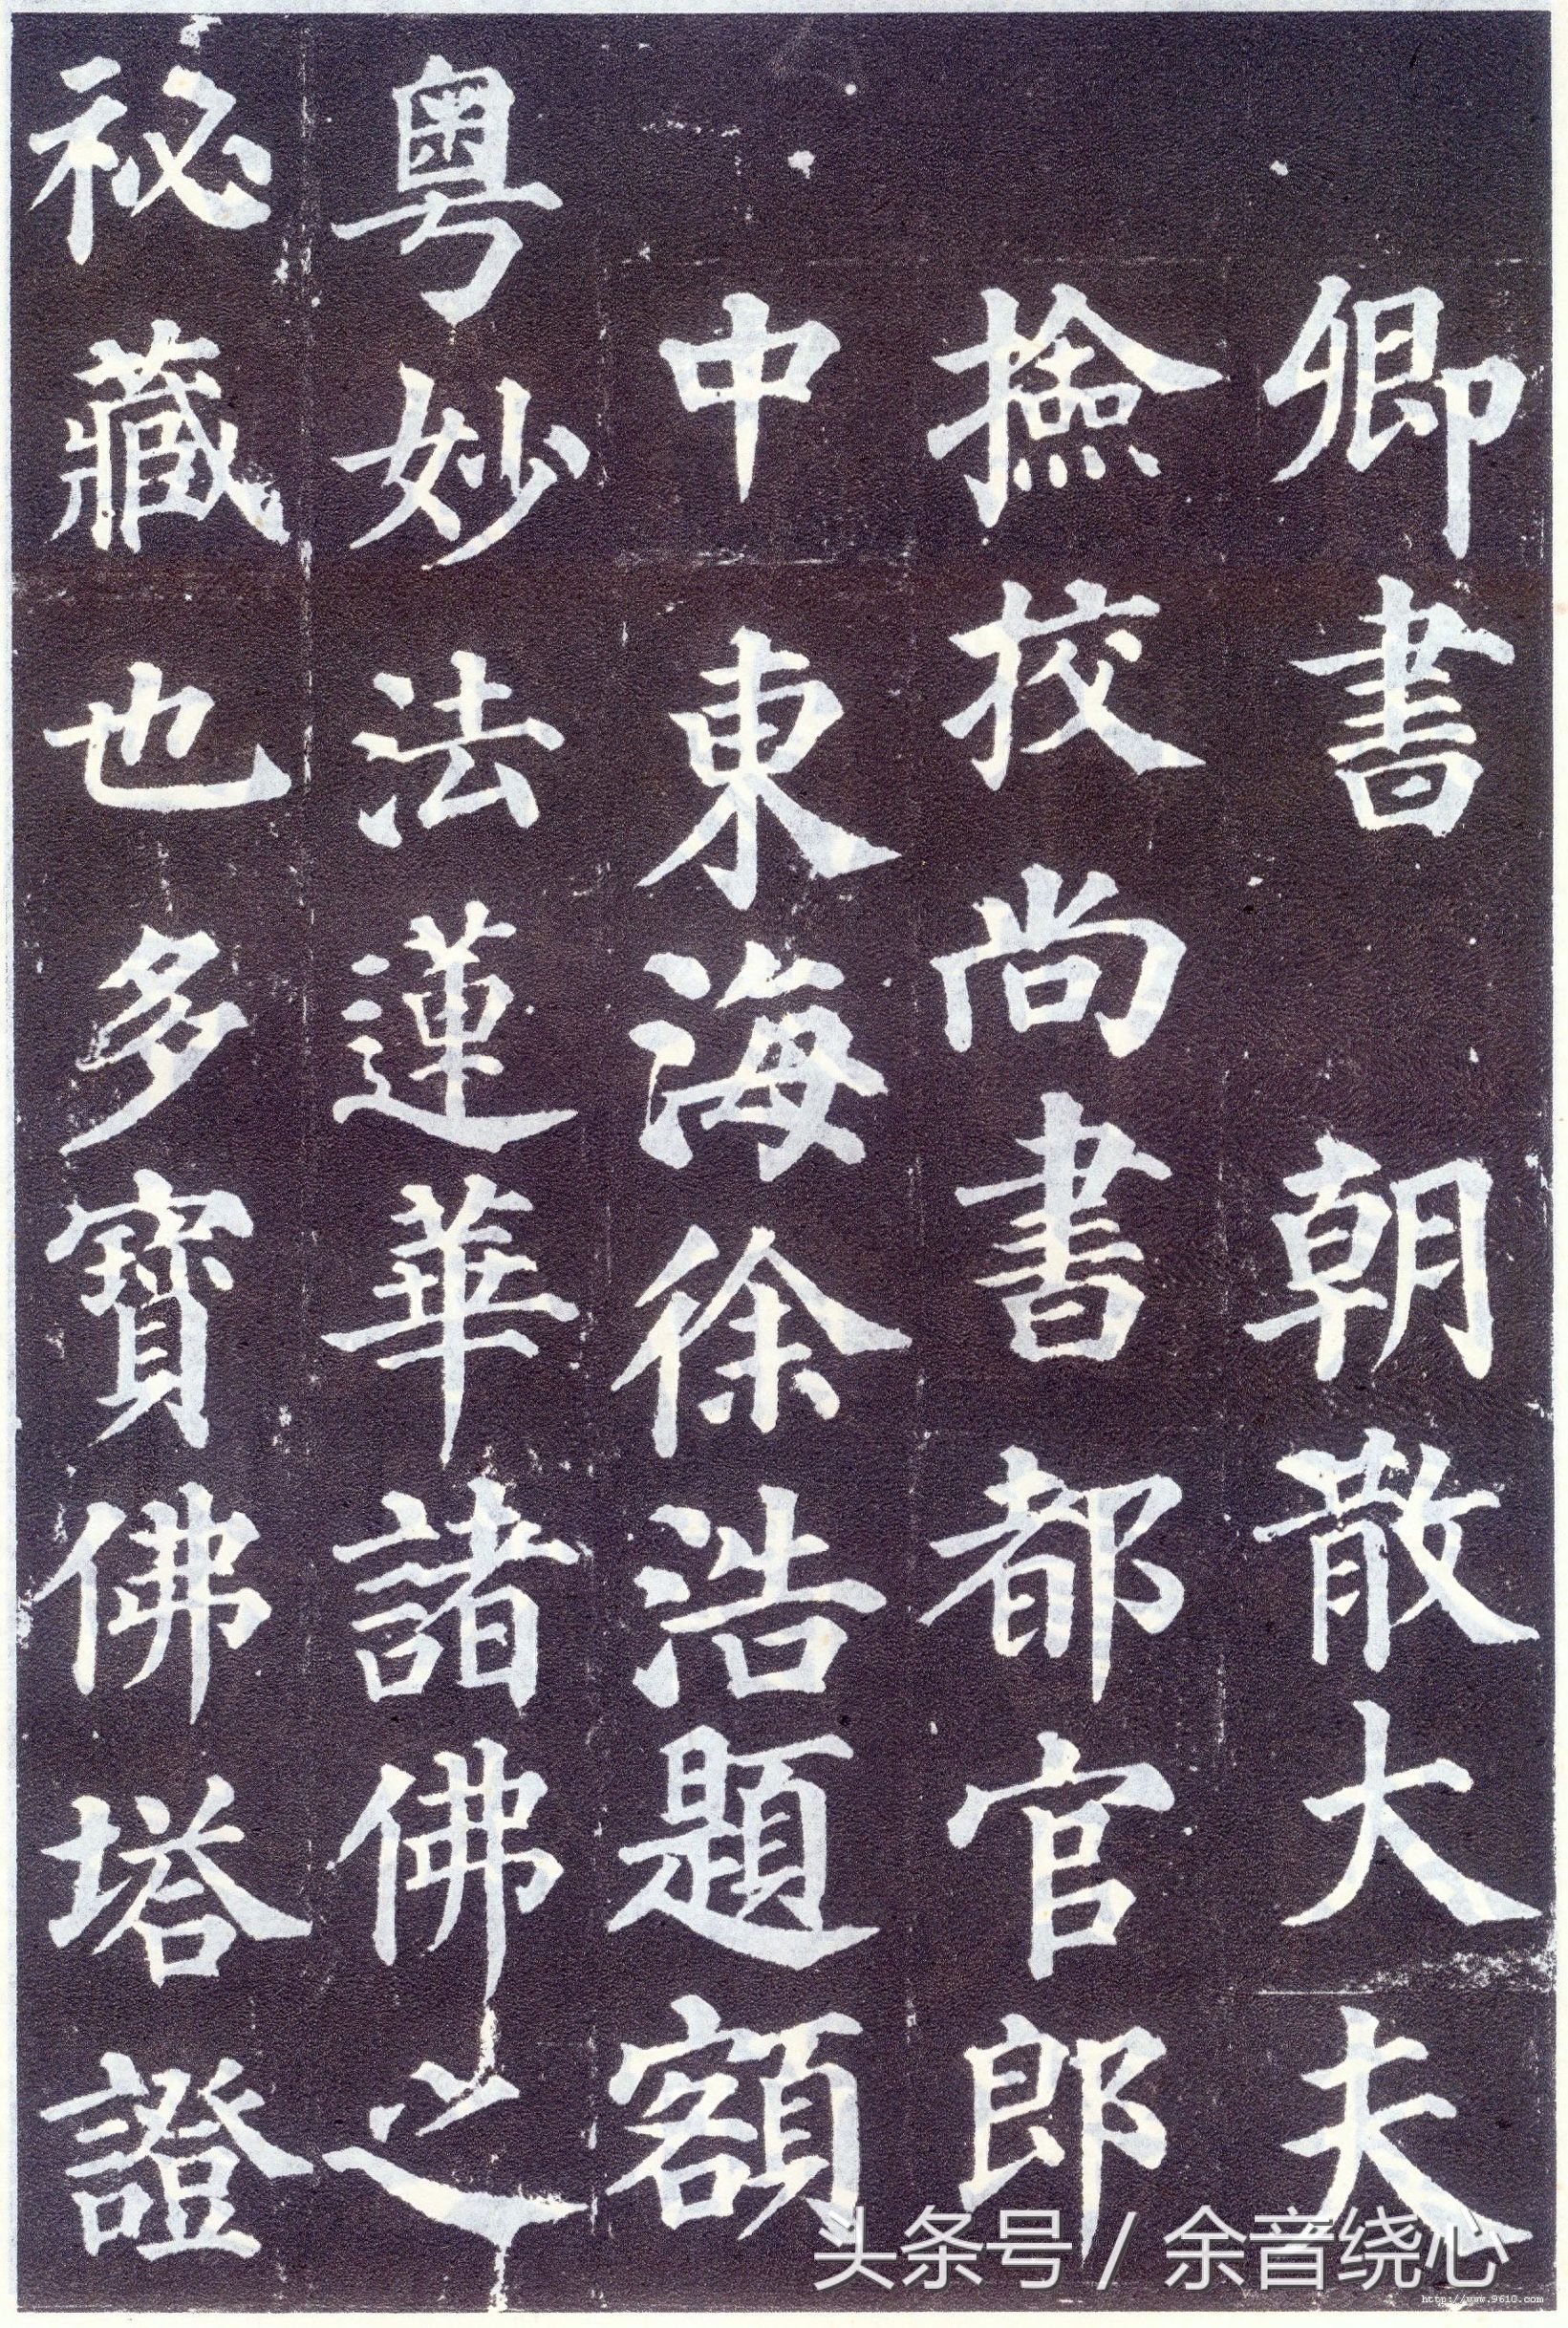 卿書 朝散大夫
撿挍尚書都官郎
中東海徐浩題額
粤妙法蓮華諸佛之
祕藏也多寶佛塔證
头条号 / 余音绕心
http://www.9610.com